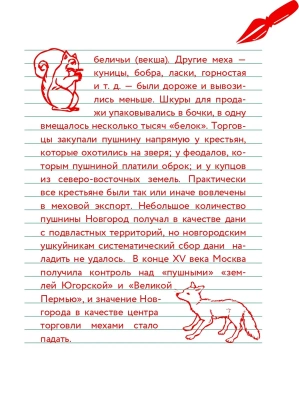 беличьи (векша). Другие меха —
куницы, бобра, ласки, горностая
и т. д. — были дороже и вывози-
лись меньше. Шкуры для прода-
жи упаковывались в бочки, в одну
вмещалось несколько тысяч «белок». Торгов-
цы закупали пушнину напрямую у крестьян,
которые охотились на зверя; у феодалов, ко-
торым пушниной платили оброк; и у купцов
из северо-восточных земель. Практически
все крестьяне были так или иначе вовлечены
в меховой экспорт. Небольшое количество
пушнины Новгород получал в качестве дани
с подвластных территорий, но новгородским
ушкуйникам систематический сбор дани на-
ладить не удалось. В конце XV века Москва
получила контроль над «пушными» «зем-
лей Югорской» и «Великой
Пермью», и значение Нов-
города в качестве центра
торговли мехами стало
падать.
7